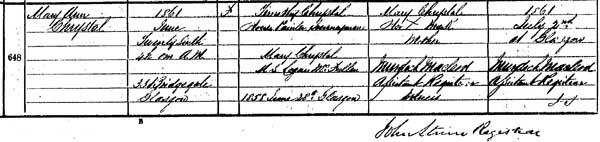 648
Mary Ann
Chrystal
1861
June
Twenty Sixth
4h 0m A.M.
33d Bridgegate
Glasgow
F
Timothy Chrystal
House Painter Journeyman
Mary Chrystal
M.S. Logan
1858 June 28th Glasgow
Mary Chrystal
Her X Mark
Mother
Murdoch Macleod
Assistant Registrar
Witness
1861
July 2nd
at Glasgow
Murdoch Macleod
Assistant Registrar
John Registrar